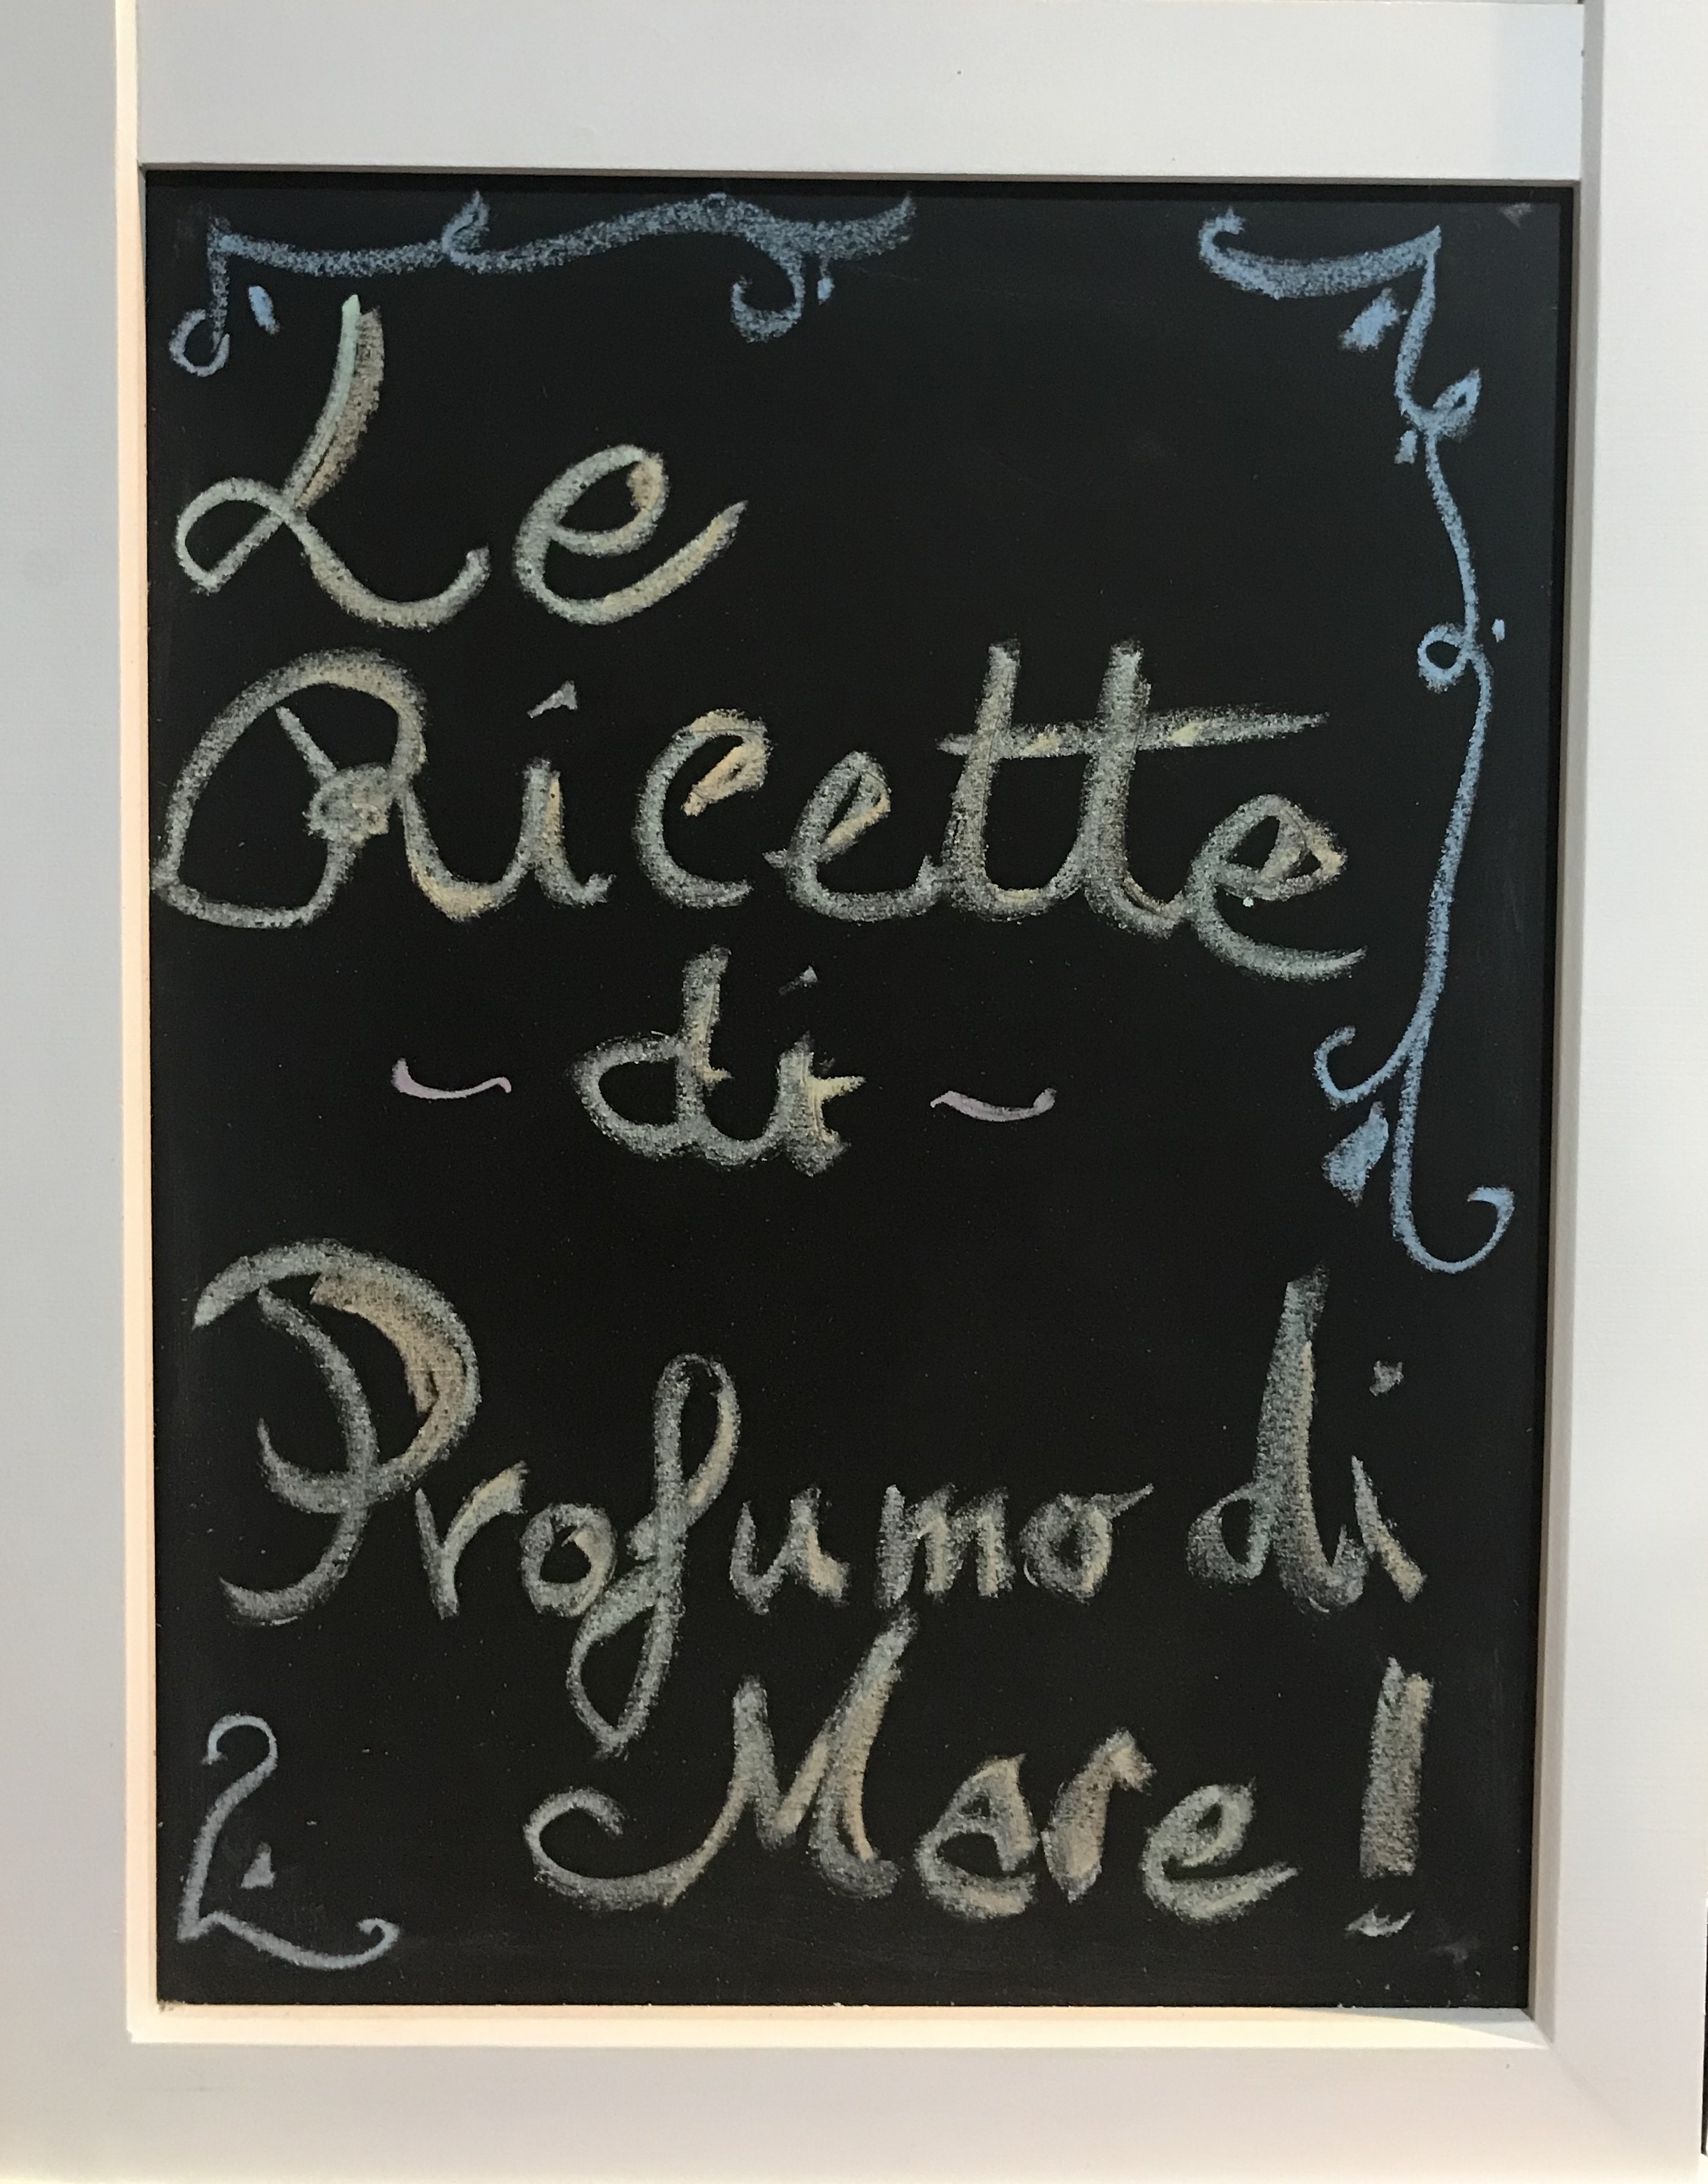 Le
Ricette
~ di ~
Profumo di
Mare!